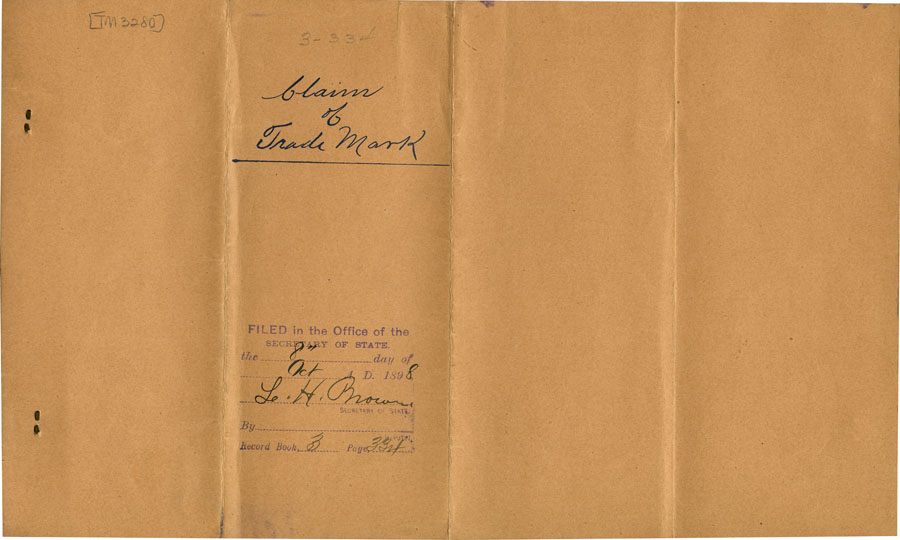 [TM3280]
3-334
Claim
of
Trade Mark
FILED in the Office of the
SECRETARY OF STATE.
the 8" day of
Oct A. D. 1898
L. H. Brown
SECRETARY OF STATE.
By
Record Book, 3 Page, 334